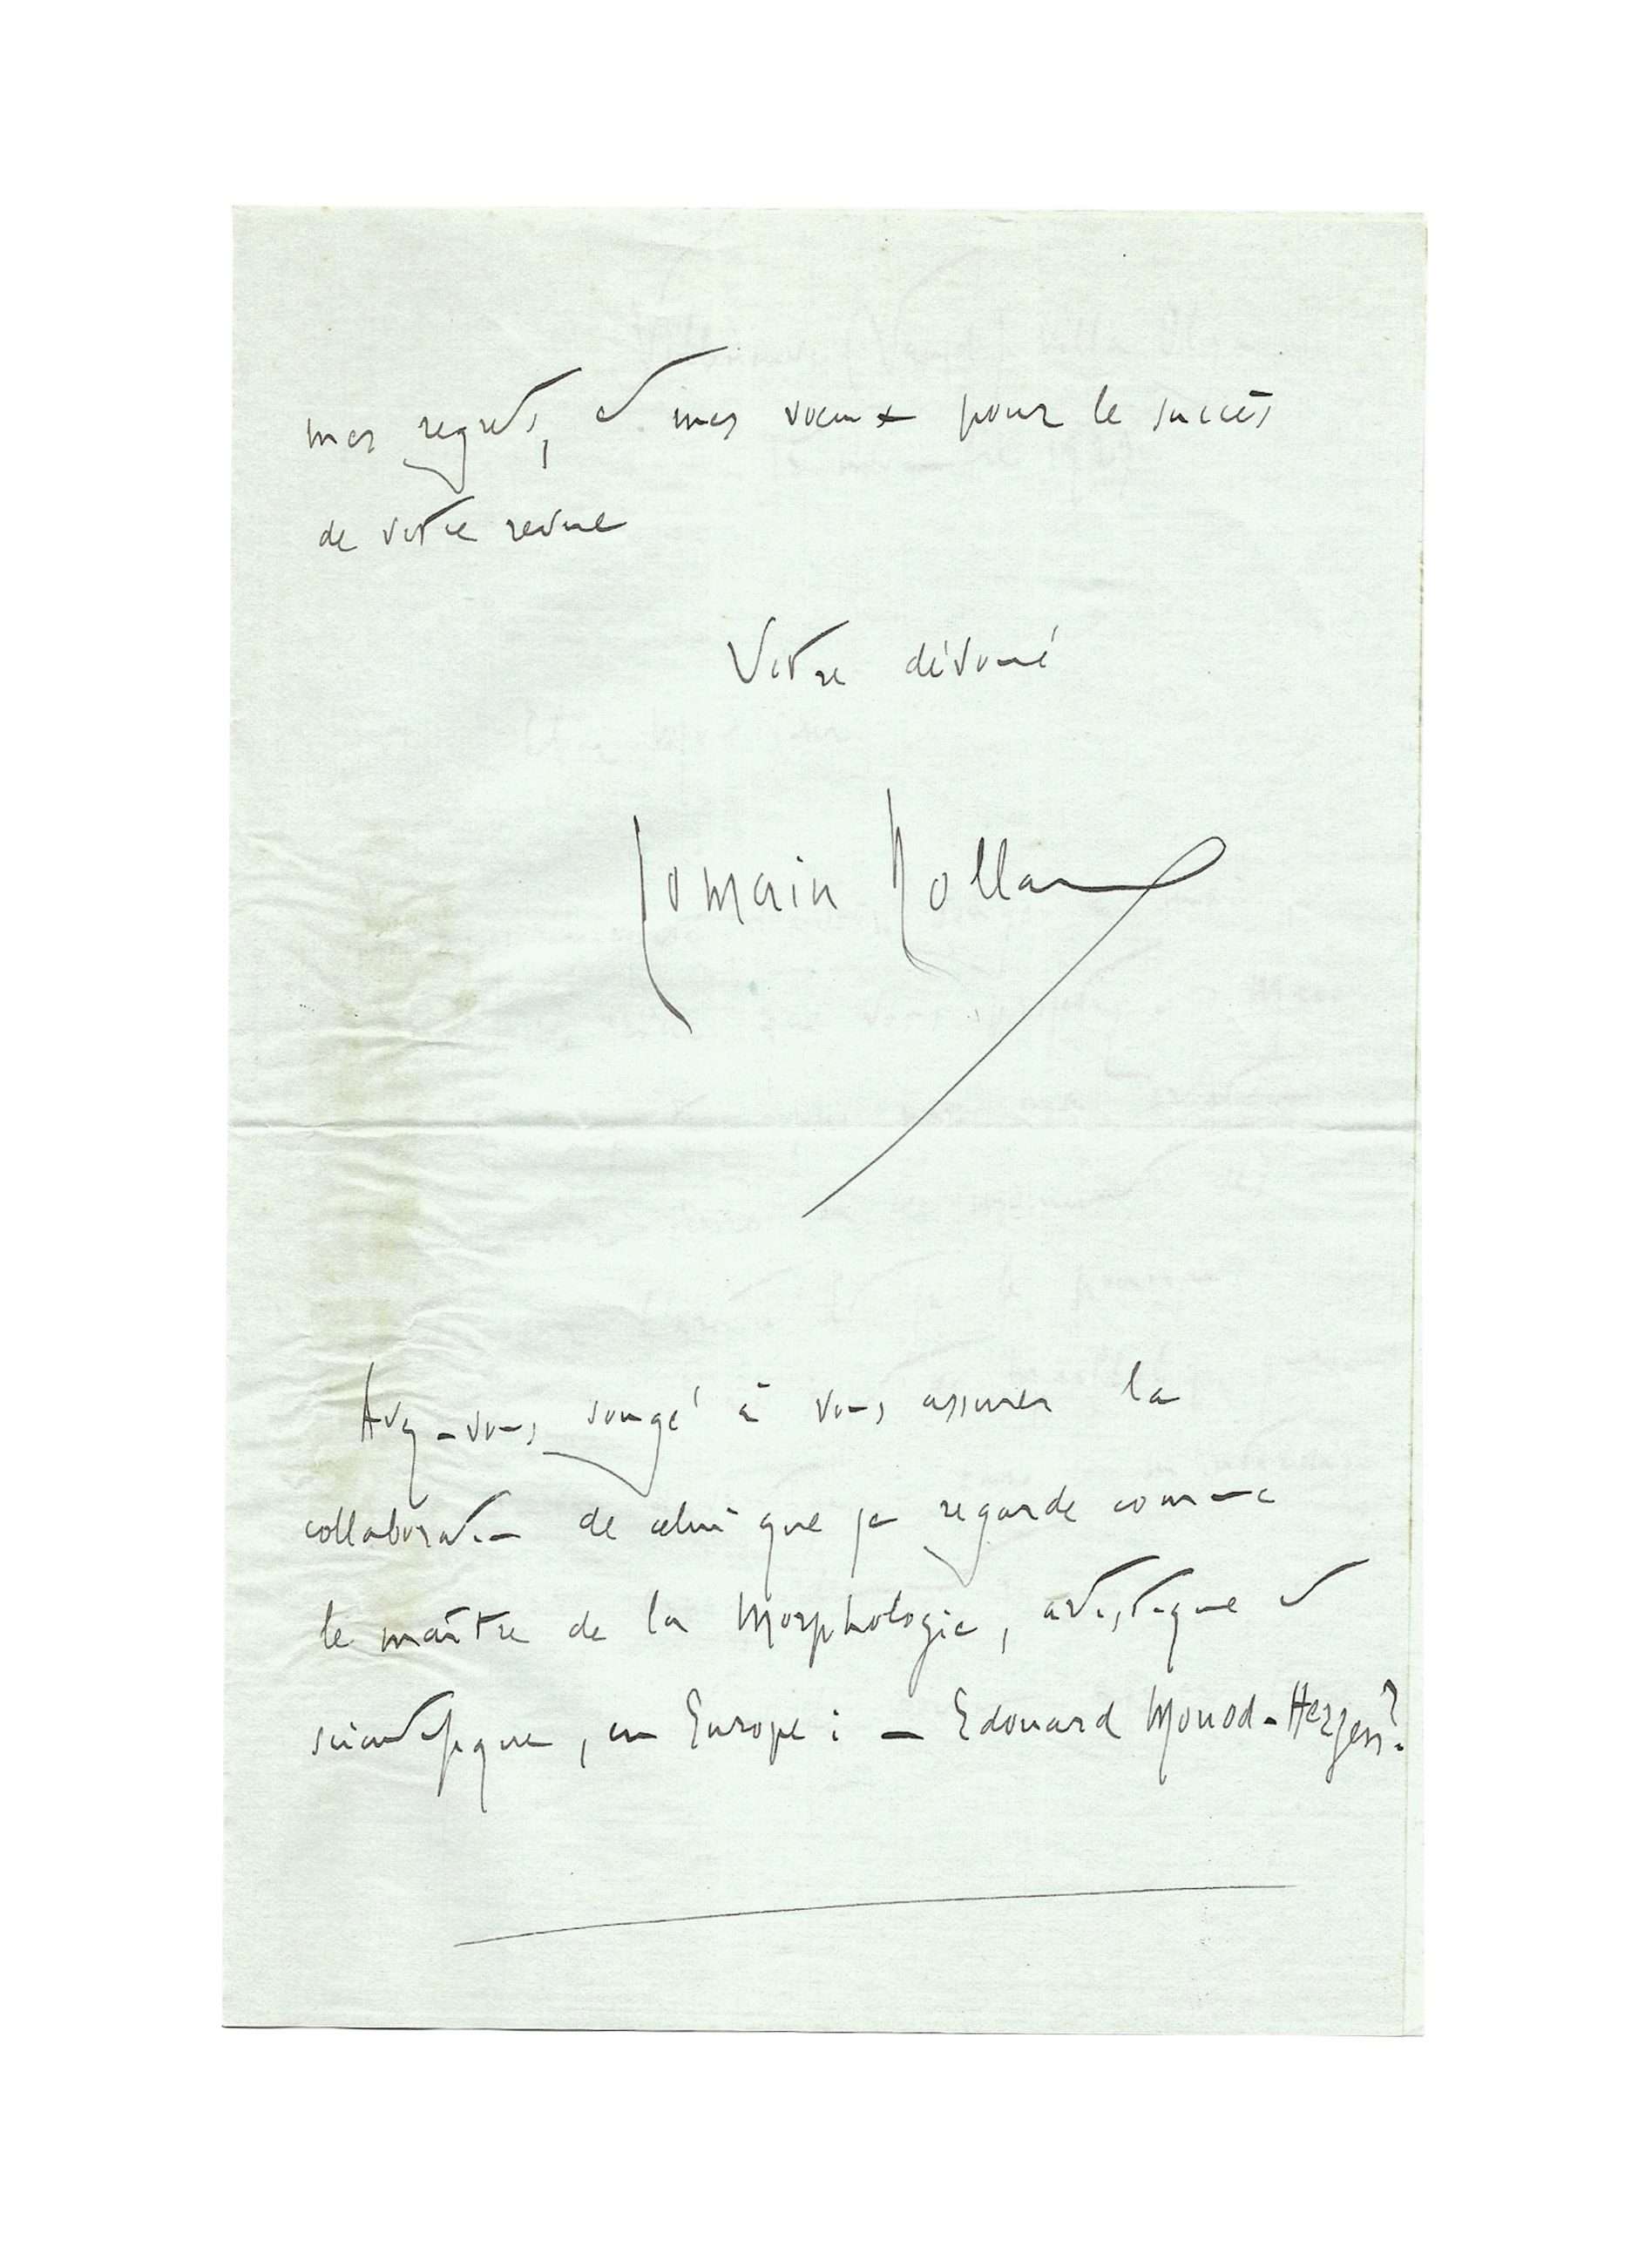 mes regrets, et mes vœux pour le succès
de votre revue
Votre dévoué
Romain Rolland
Avez-vous songé à vous assurer la
collaboration de celui que je regarde comme
le maître de la Morphologie, artistique et
scientifique, en Europe : — Edouard Monod-Herzen?